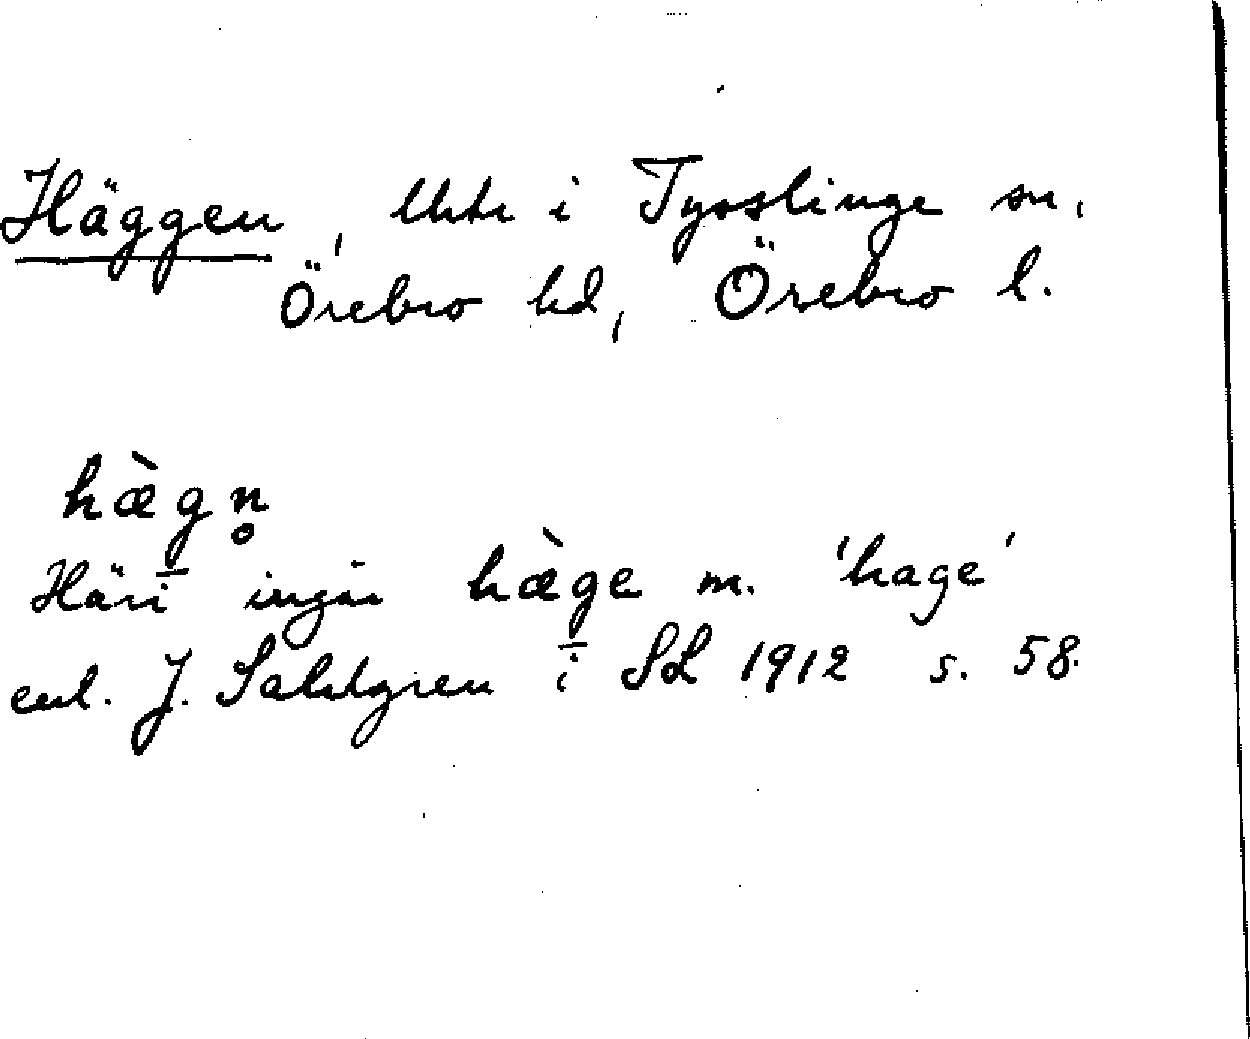 Häggen, lht i Tysslinge sn,
Örebro hd, Örebro l.
hæ̀gn̥
Häri ingår hæ̀ge m. 'hage'
enl. J. Sahlgren i SL 1912 s. 58.